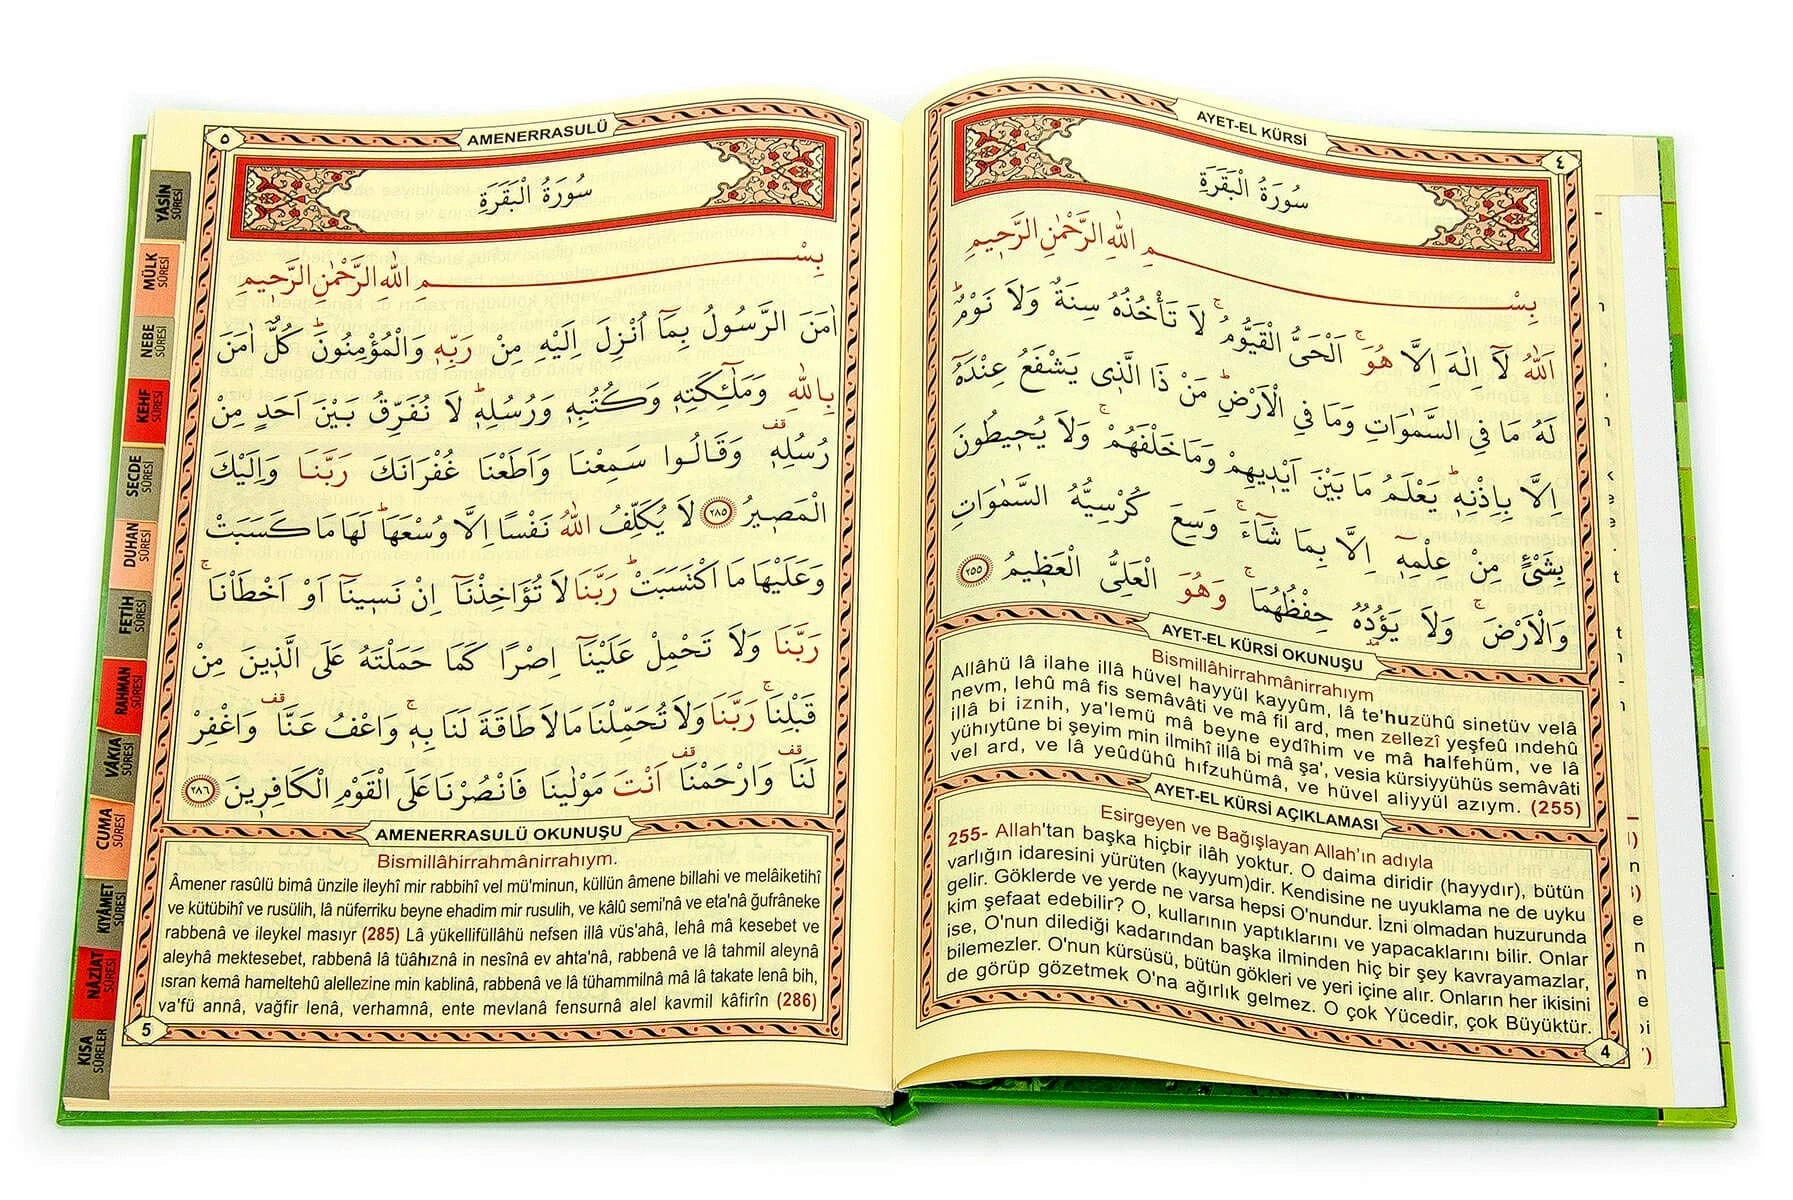 AYET-EL KÜRSİ
٤
سُورَةُ الْبَقَرَةِ
بِسْــــمِ اللهِ الرَّحْمٰنِ الرَّحِيمِ
اَللهُ لَآ اِلٰهَ اِلَّا هُوَ ۚ اَلْحَيُّ الْقَيُّومُ ۚ لَا تَأْخُذُهُ سِنَةٌ وَلَا نَوْمٌ ۜ
لَهُ مَا فِي السَّمٰوَاتِ وَمَا فِي الْاَرْضِ ۜ مَنْ ذَا الَّذِي يَشْفَعُ عِنْدَهُٓ
اِلَّا بِاِذْنِهِ ۜ يَعْلَمُ مَا بَيْنَ اَيْدِيهِمْ وَمَا خَلْفَهُمْ ۚ وَلَا يُحِيطُونَ
بِشَيْءٍ مِنْ عِلْمِهِٓ اِلَّا بِمَا شَآءَ ۚ وَسِعَ كُرْسِيُّهُ السَّمٰوَاتِ
وَالْاَرْضَ ۚ وَلَا يَؤُدُهُ حِفْظُهُمَا ۚ وَهُوَ الْعَلِيُّ الْعَظِيمُ ٢٥٥
AYET-EL KÜRSİ OKUNUŞU
Bismillâhirrahmânirrahıym
Allâhü lâ ilahe illâ hüvel hayyül kayyûm, lâ te'huzühû sinetüv velâ
nevm, lehû mâ fis semâvâti ve mâ fil ard, men zellezî yeşfeû ındehû
illâ bi iznih, ya'lemü mâ beyne eydîhim ve mâ halfehüm, ve lâ
yühıytûne bi şeyim min ilmihî illâ bi mâ şa', vesia kürsiyyühüs semâvâti
vel ard, ve lâ yeûdühû hıfzuhümâ, ve hüvel aliyyül azıym. (255)
AYET-EL KÜRSİ AÇIKLAMASI
Esirgeyen ve Bağışlayan Allah'ın adıyla
255- Allah'tan başka hiçbir ilâh yoktur. O daima diridir (hayydır), bütün
varlığın idaresini yürüten (kayyum)dir. Kendisine ne uyuklama ne de uyku
gelir. Göklerde ve yerde ne varsa hepsi O'nundur. İzni olmadan huzurunda
kim şefaat edebilir? O, kullarının yaptıklarını ve yapacaklarını bilir. Onlar
ise, O'nun dilediği kadarından başka ilminden hiç bir şey kavrayamazlar,
bilemezler. O'nun kürsüsü, bütün gökleri ve yeri içine alır. Onların her ikisini
de görüp gözetmek O'na ağırlık gelmez. O çok Yücedir, çok Büyüktür.
4
٥
AMENERRASULÜ
سُورَةُ الْبَقَرَةِ
بِسْــــمِ اللهِ الرَّحْمٰنِ الرَّحِيمِ
اٰمَنَ الرَّسُولُ بِمَآ اُنْزِلَ اِلَيْهِ مِنْ رَبِّهِ وَالْمُؤْمِنُونَ ۜ كُلٌّ اٰمَنَ
بِاللهِ وَمَلٰٓئِكَتِهِ وَكُتُبِهِ وَرُسُلِهِ ۜ لَا نُفَرِّقُ بَيْنَ اَحَدٍ مِنْ
رُسُلِهِ وَقَالُوا سَمِعْنَا وَاَطَعْنَا غُفْرَانَكَ رَبَّنَا وَاِلَيْكَ
الْمَصِيرُ ٢٨٥ لَا يُكَلِّفُ اللهُ نَفْسًا اِلَّا وُسْعَهَا ۜ لَهَا مَا كَسَبَتْ
وَعَلَيْهَا مَا اكْتَسَبَتْ ۜ رَبَّنَا لَا تُؤَاخِذْنَآ اِنْ نَسِينَآ اَوْ اَخْطَأْنَا ۚ
رَبَّنَا وَلَا تَحْمِلْ عَلَيْنَآ اِصْرًا كَمَا حَمَلْتَهُ عَلَى الَّذِينَ مِنْ
قَبْلِنَا ۚ رَبَّنَا وَلَا تُحَمِّلْنَا مَا لَا طَاقَةَ لَنَا بِهِ ۚ وَاعْفُ عَنَّا وَاغْفِرْ
لَنَا وَارْحَمْنَا اَنْتَ مَوْلٰينَا فَانْصُرْنَا عَلَى الْقَوْمِ الْكَافِرِينَ ٢٨٦
AMENERRASULÜ OKUNUŞU
Bismillâhirrahmânirrahıym.
Âmener rasûlü bimâ ünzile ileyhî mir rabbihî vel mü'minun, küllün âmene billahi ve melâiketihî
ve kütübihî ve rusülih, lâ nüferriku beyne ehadim mir rusulih, ve kâlû semi'nâ ve eta'nâ ğufrâneke
rabbenâ ve ileykel masıyr (285) Lâ yükellifüllâhü nefsen illâ vüs'ahâ, lehâ mâ kesebet ve
aleyhâ mektesebet, rabbenâ lâ tüâhıznâ in nesînâ ev ahta'nâ, rabbenâ ve lâ tahmil aleynâ
ısran kemâ hameltehû alellezine min kablinâ, rabbenâ ve lâ tühammilnâ mâ lâ takate lenâ bih,
va'fü annâ, vağfir lenâ, verhamnâ, ente mevlanâ fensurnâ alel kavmil kâfirîn (286)
5
YÂSİN
SÛRESİ
MÜLK
SÛRESİ
NEBE
SÛRESİ
KEHF
SÛRESİ
SECDE
SÛRESİ
DUHAN
SÛRESİ
FETİH
SÛRESİ
RAHMAN
SÛRESİ
VÂKIA
SÛRESİ
CUMA
SÛRESİ
KIYÂMET
SÛRESİ
NÂZİAT
SÛRESİ
KISA
SÛRELER